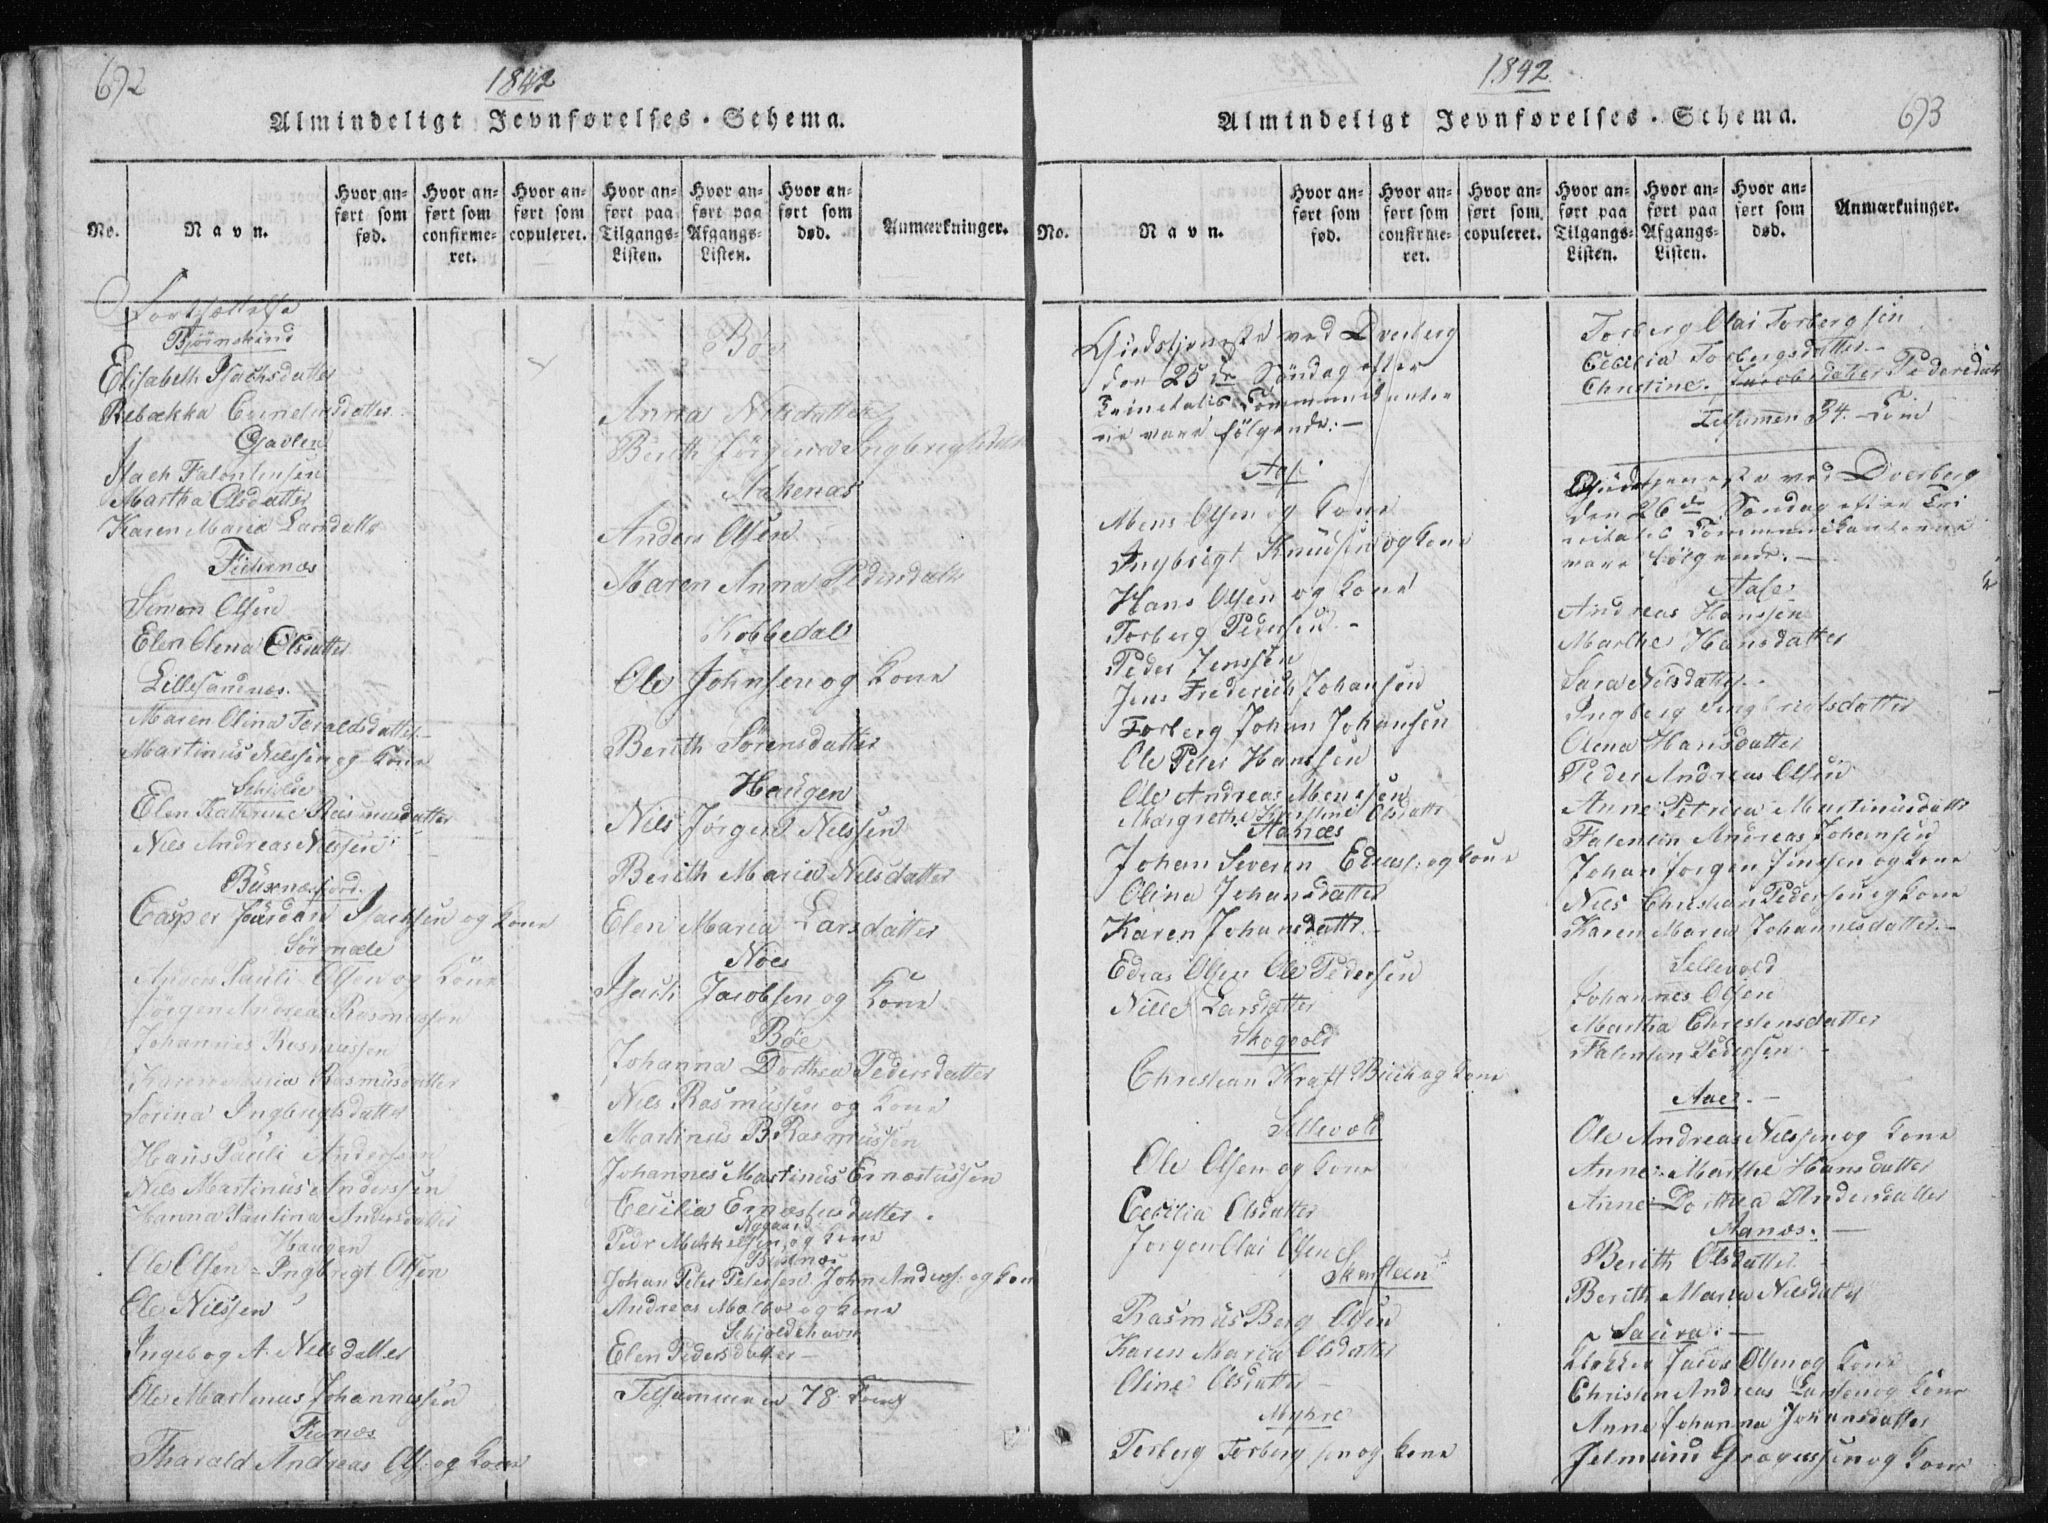 692
1842
Almindeligt Jevnførelses-Schema.
No.
Navn.
Hvor anført som fød.
Hvor anført som confirmeret.
Hvor anført som copuleret.
Hvor anført paa Tilgangs-Listen.
Hvor anført paa Afgangs-Listen.
Hvor anført som død.
Anmærkninger.
Fortsættelse
Bjørnskind
Elisabeth Isachsdatter
Rebækka Cornelusdatter
Gavlen
Isach Falentinsen
Martha Olsdatter
Karen Maria Larsdattr
Fiskenæs
Simon Olsen
Elen Olena Olsdatter
Lillesandnæs.
Maren Olina Toraldsdatter
Martinus Nilssen og Kone
Elen Kathrine Rasmusdatter
Nils Andreas Nilssen
Buxnæsfjord.
Casper Jürdan Isachsen og Kone
Sørmæle
Anders Pauli Olsen og Kone
Jørgen Andreas Rasmussen
Johannes Rasmussen
Karen Maria Rasmusdatter
Sorina Ingbrigtsdatter
Hans Pauli Andersen
Nils Martinus Anderssen
Hanna Paulina Andersdatter
Haugen
Ole Olsen - Ingbregt Olsen
Ole Nilssen
Ingebog A. Nilsdatter
Ole Martinus Johannessen
Finnæs
Tharald Andreas Ols: og Kone
Bøe
Anna Nilsdatter
Berith Jørgina Ingbregtsdatt
Aakenæs
Anders Olsen
Maren Anna Pedersdattr
Kobbedal
Ole Johnsen og Kone
Berith Sörensdatter
Haugen
Nils Jørgen Nilssen
Berith Maria Nilsdatter
Elen Maria Larsdatter
Nöes
Isach Jacobsen og Kone
Böe
Johanna Dorthea Pedersdatter
Nils Rasmussen og Kone
Martinus B. Rasmussen
Johannes Martinus Ernæstussen
Cecilia Ernæstusdatter.
Nygaard
Pedr Mikkelsen og Kone
Johan Peter Petersen John Anders: og Kone
Andreas Molbo og Kone
Schjoldehavn
Elen Pedersdatter
Tilsammen 78 Comg
1842
693
Almindeligt Jevnførelses-Schema.
No.
Navn.
Hvor anført som fød.
Hvor anført som confirmeret.
Hvor anført som copuleret.
Hvor anført paa Tilgangs-Listen.
Hvor anført paa Afgangs-Listen.
Hvor anført som død.
Anmærkninger.
Gudstjeneste ved Dverberg
den 25de Søndag efter
Trinitatis Communikanter
ne vare følgende: -
Aase
Mons Olsen og Kone
Ingbrigt Knudsen og Kone
Hans Olsen og Kone
Torberg Pedersen -
Peder Jenssen
Jens Frederich Johansen
Torberg Johan Johansen
Ole Peter Hanssen
Ole Andreas Monssen
Margrethe Kirstine Olsdattr
Aanæs
Johan Severin Edeas: og Kone
Olina Johansdatter
Karen Johansdattr. -
Edeas Olsen Ole Pedersen
Nille Larsdatter
Skogvold
Christian Kraft Buck og Kone
Sellevold
Ole Olsen og Kone
Cecilia Olsdatter
Jørgen Olai Olsen
Skarsteen
Rasmus Berg Olsen
Karen Maria Olsdatter
Oline Olsdatter -
Myhre
Torberg Torbergsen og Kone
Torberg Olai Torbergsen
Cecelia Torbergsdatter. -
Christine Jacobsdatter Pedersdatt
Tilsamen 34. Com
Gudstjeneste ved Dverberg
den 26de Søndag efter Tri
nitatis Communikanterne
vare følgende. -
Aase
Andreas Hanssen
Marthe Hansdatter
Sara Nilsdatter. -
Ingberg Ingbrigtsdatter
Olena Hansdatter
Peder Andreas Olsen
Anne Petrica Martinusdattr
Falentin Andreas Johansen
Johan Jørgen Jenssen og Kone
Nils Christian Pedersen og Kone
Karen Maria Johannesdatter. -
Sellevold
Johannes Olsen
Martha Christensdatter
Falentin Pedersen -
Aaes. -
Ole Andreas Nilssen og Kone
Anne Marthe Hansdatter
Anne Dorthea Andersdatter
Aanæs. -
Berith Olsdatter
Berith Maria Nilsdatter
Saura. -
Klokker Jacob Olsen og Kone
Christen Andreas Larssen og Kone
Anne Johanna Johansdatter
Jelmund Gregussen og Kone